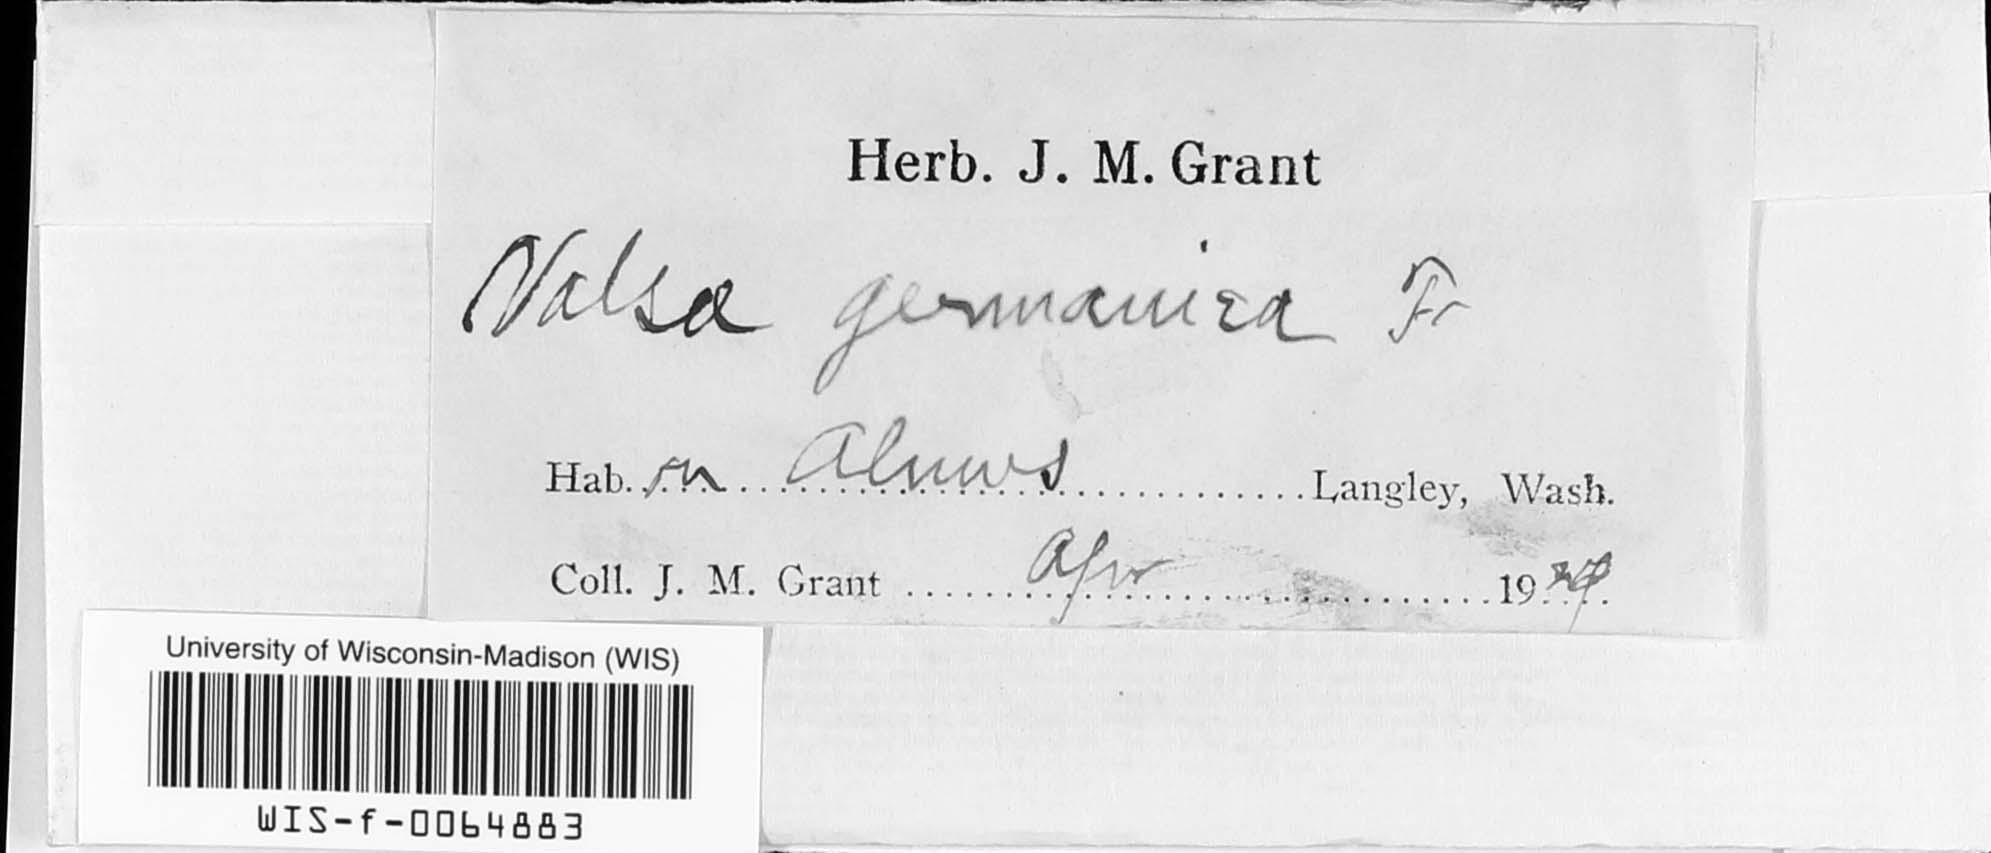 Herb. J. M. Grant
Valsa germanica Fr
Hab. on Alnus Langley, Wash.
Coll. J. M. Grant Apr 19
University of Wisconsin-Madison (WIS)
WIS-f-0064883